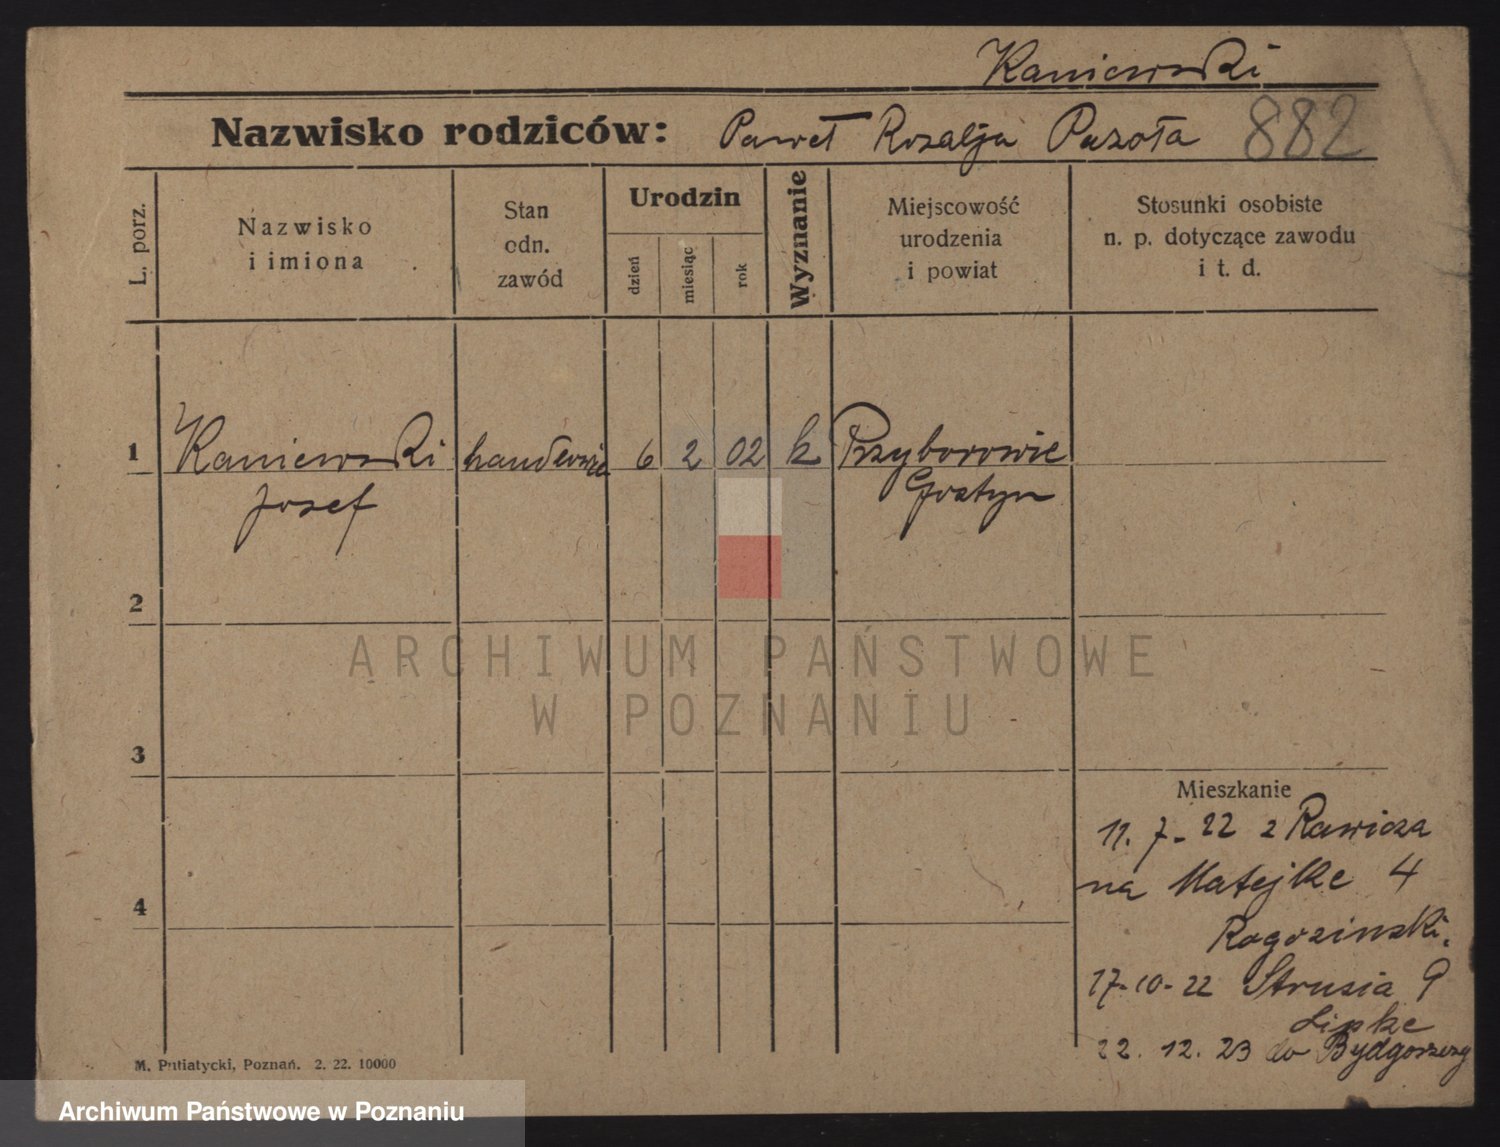 Kaniewski
Nazwisko rodziców: Paweł Rozalja Pazoła 882
L. porz.
Nazwisko
i imiona
Stan
odn.
zawód
Urodzin
dzień
miesiąc
rok
Wyznanie
Miejscowość
urodzenia
i powiat
Stosunki osobiste
n. p. dotyczące zawodu
i t. d.
1 Kaniewski 6 2 02 k Przyborowie
Josef Gostyn
2
3
4
Mieszkanie
11. 7. 22 z Rawicza
na Matejke 4
Rogozinski.
17-10-22 Strusia 9
Lipke
22. 12. 23 do Bydgoszczy
M. Putiatycki, Poznań. 2. 22. 10000
ARCHIWUM PAŃSTWOWE
W POZNANIU
Archiwum Państwowe w Poznaniu